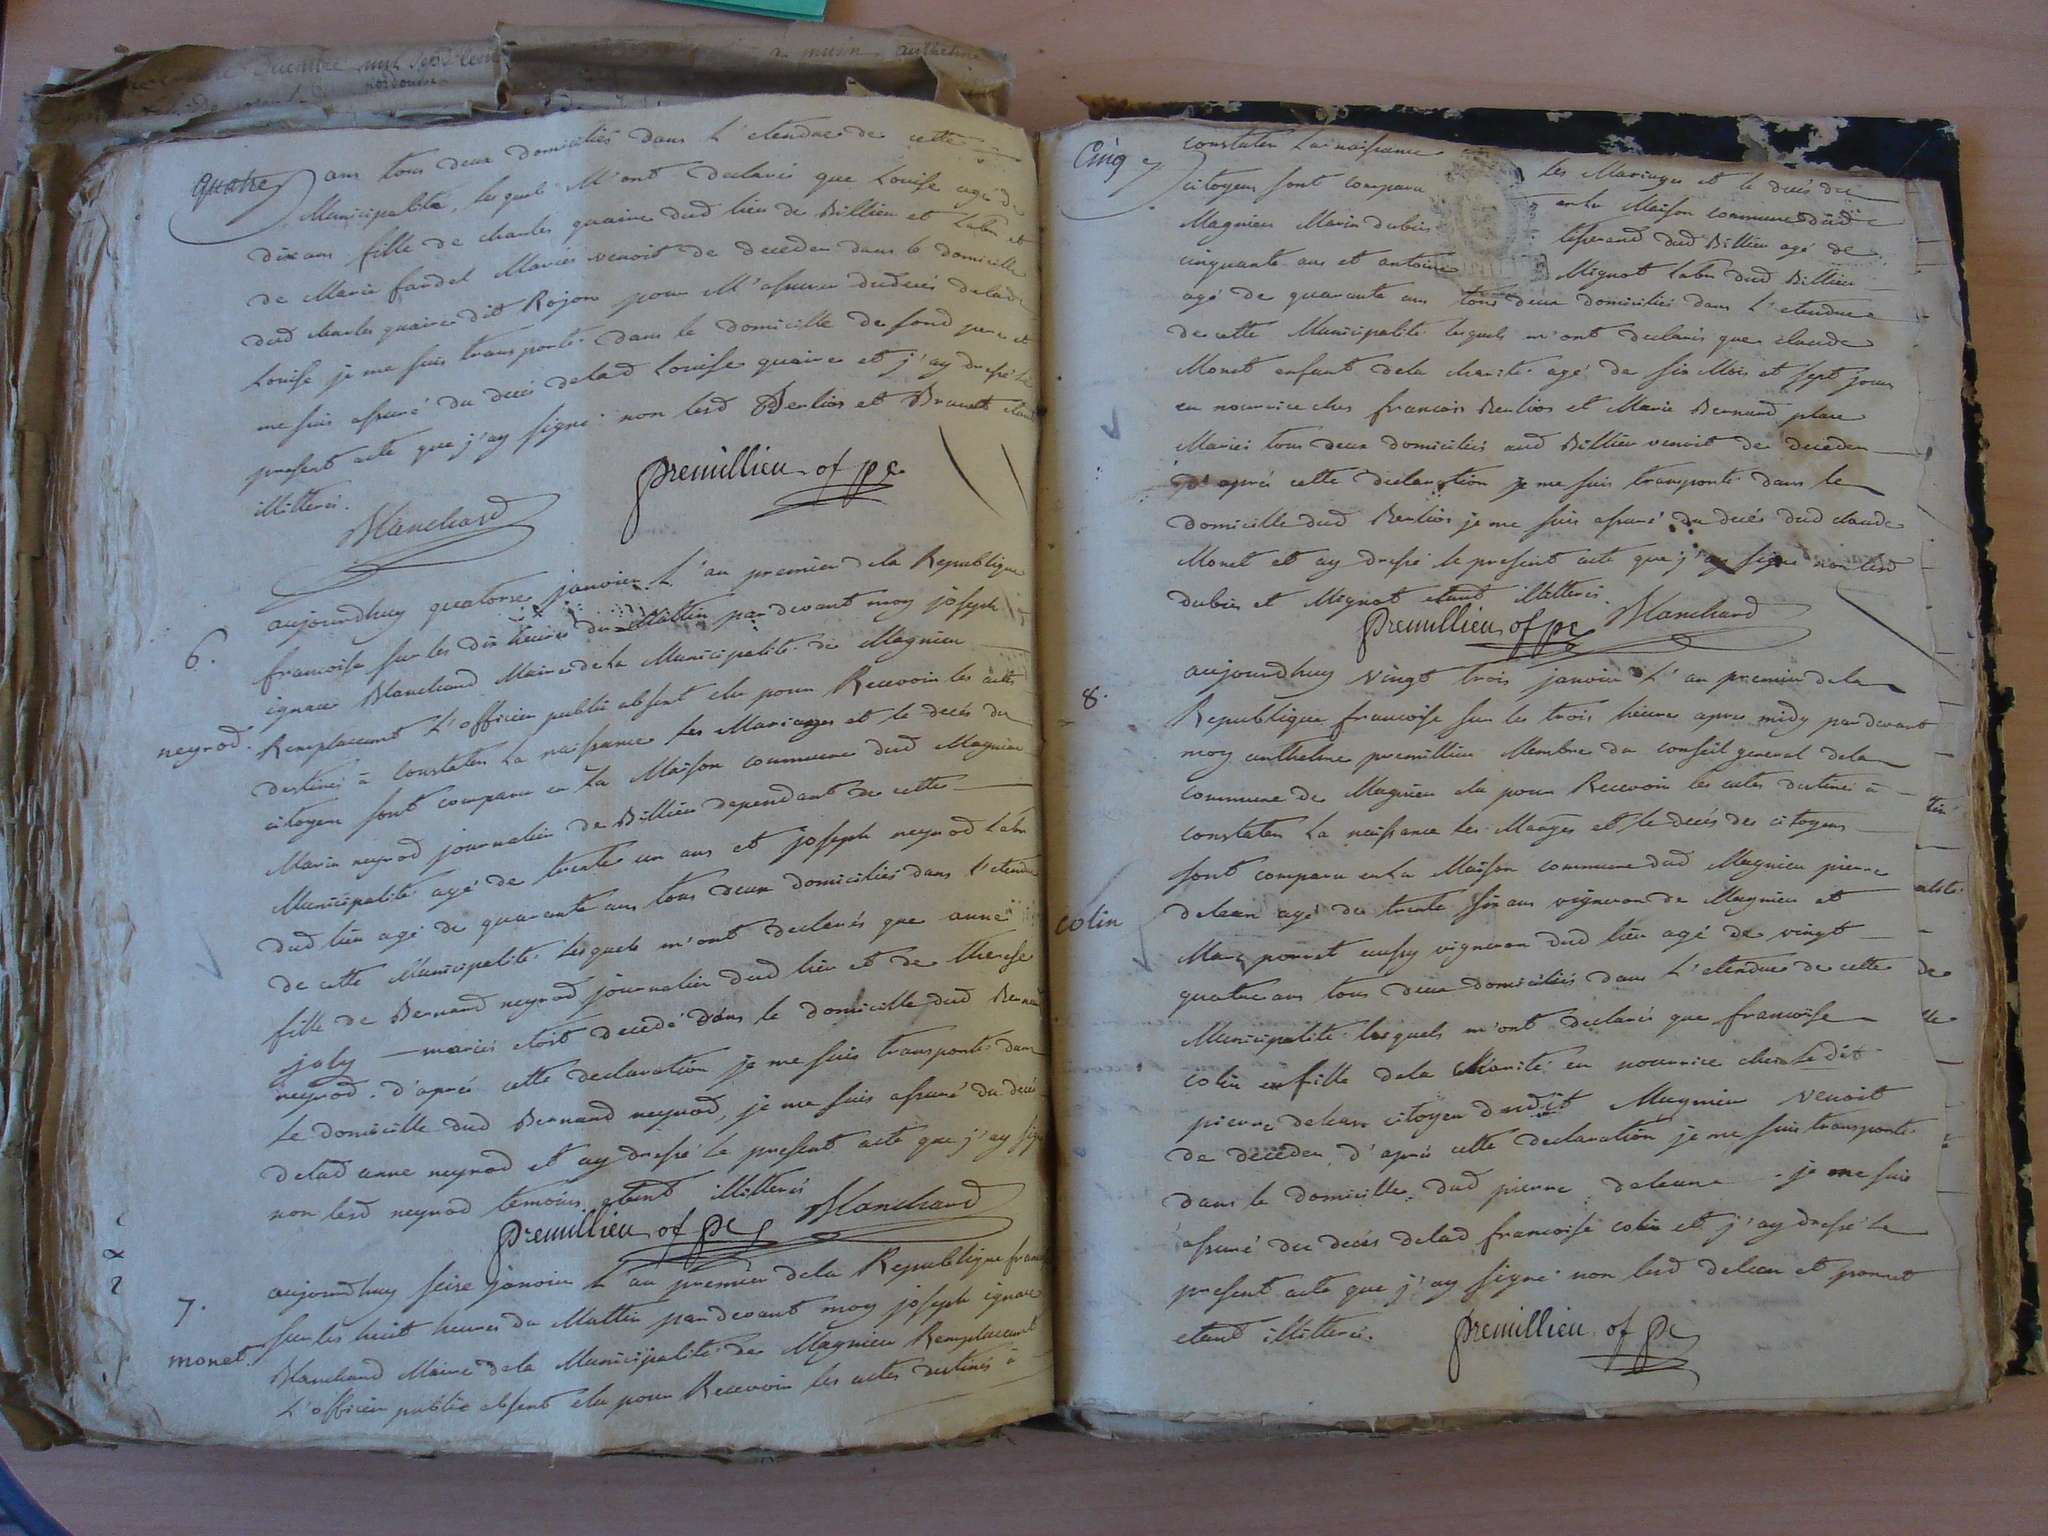 quatre
ans tous deux domiciliés dans L'etendue de cette
Municipalité, lesquels M'ont declarés que Louise agé de
dix ans fille de charles quaire dud lieu de Billieu et
de Marie fardel Mariés venoit de deceder dans le domicille
dud charles quaire dit Rojon pour M'assurer dudecés delad
Louise je me suis transporté dans le domicille de sond pere et
me suis assuré du decé delad Louise quaire et j'ay dressé le
present acte que j'ay signé non lesd Berlios et Brunet etant
illitterés.
Blanchard
premillieu of pc
6.
neyrod.
aujourdhuy quatorse janvier L'an premier de la Republique
francoise sur les dix heures du Mattin pardevant moy joseph
ignace Blanchard Maire de la Municipalité de Magnieu
Remplacant L'officier public absent elu pour Recevoir les actes
destinés à constater La naissance Les Mariages et le decés des
citoyens sont comparu en La Maison commune dud Magnieu
Marin neyrod journalier de Billieu dependant de cette
Municipalité agé de trente un ans et joseph neyrod Labr
dud lieu agé de quarante ans tous deux domiciliés dans l'etendue
de cette Municipalité Lesquels m'ont declarés que anne
fille de Bernard neyrod journalier dud lieu et de therese
joly mariés etoit decedé dans le domicille dud Bernard
neyrod. d'aprés cette declaration je me suis transporté dans
Le domicille dud Bernard neyrod, je me suis assuré du decé
delad anne neyrod et ay dressé le present acte que j'ay signé
non lesd neyrod temoins etant illitterés
premillieu of pc
Blanchard
7.
monet.
aujourdhuy seise janvier L'an premier dela Republique
sur les huit heures du Mattin pardevant moy joseph ignace
Blanchard Maire dela Municipalité de Magnieu Remplacant
L'officier public absent elu pour Recevoir les actes destinés à
Cinq
constater La naissance Les Mariages et le decés des
citoyens sont comparu en La Maison commune dud
Magnieu Marin dubuis dud Billieu agé de
cinquante ans et antoine Mignot Labr dud Billieu
agé de quarante ans tous deux domiciliés dans L'etendue
de cette Municipalité lesquels m'ont declarés que claude
Monet enfant dela charité agé de six Mois et sept jours
en nourrice chés francois Berlios et Marie Bernard
Mariés tous deux domiciliés aud Billieu venoit de deceder
d'aprés cette declaration je me suis transporté dans le
domicille dud Berlios je me suis assuré du decés dud claude
Monet et ay dressé le present acte que j'ay signé non lesd
dubuis et Mignot etant illitterés.
premillieu of pc
Blanchard
8.
colin
aujourdhuy vingt trois janvier L'an premier dela
Republique francoise sur les trois heure apres midy pardevant
moy anthelme premillieu Membre du conseil general dela
commune de Magnieu elu pour Recevoir les actes destinés à
constater La naissance Les Mariages et le decés des citoyens
sont comparu en La Maison commune dud Magnieu pierre
delean agé de trente six ans vigneron de Magnieu et
Marc ponnet aussy vigneron dud lieu agé de vingt
quatre ans tous deux domiciliés dans L'etendue de cette
Municipalité lesquels m'ont declarés que francoise
colin fille dela charité en nourrice chés Ledit
pierre delean citoyen dudit Magnieu venoit
de deceder, d'aprés cette declaration je me suis transporté
dans le domicille dud pierre deleane je me suis
assuré du decés delad francoise colin et j'ay dressé le
present acte que j'ay signé non lesd delean et ponnet
etant illitterés.
premillieu of pc